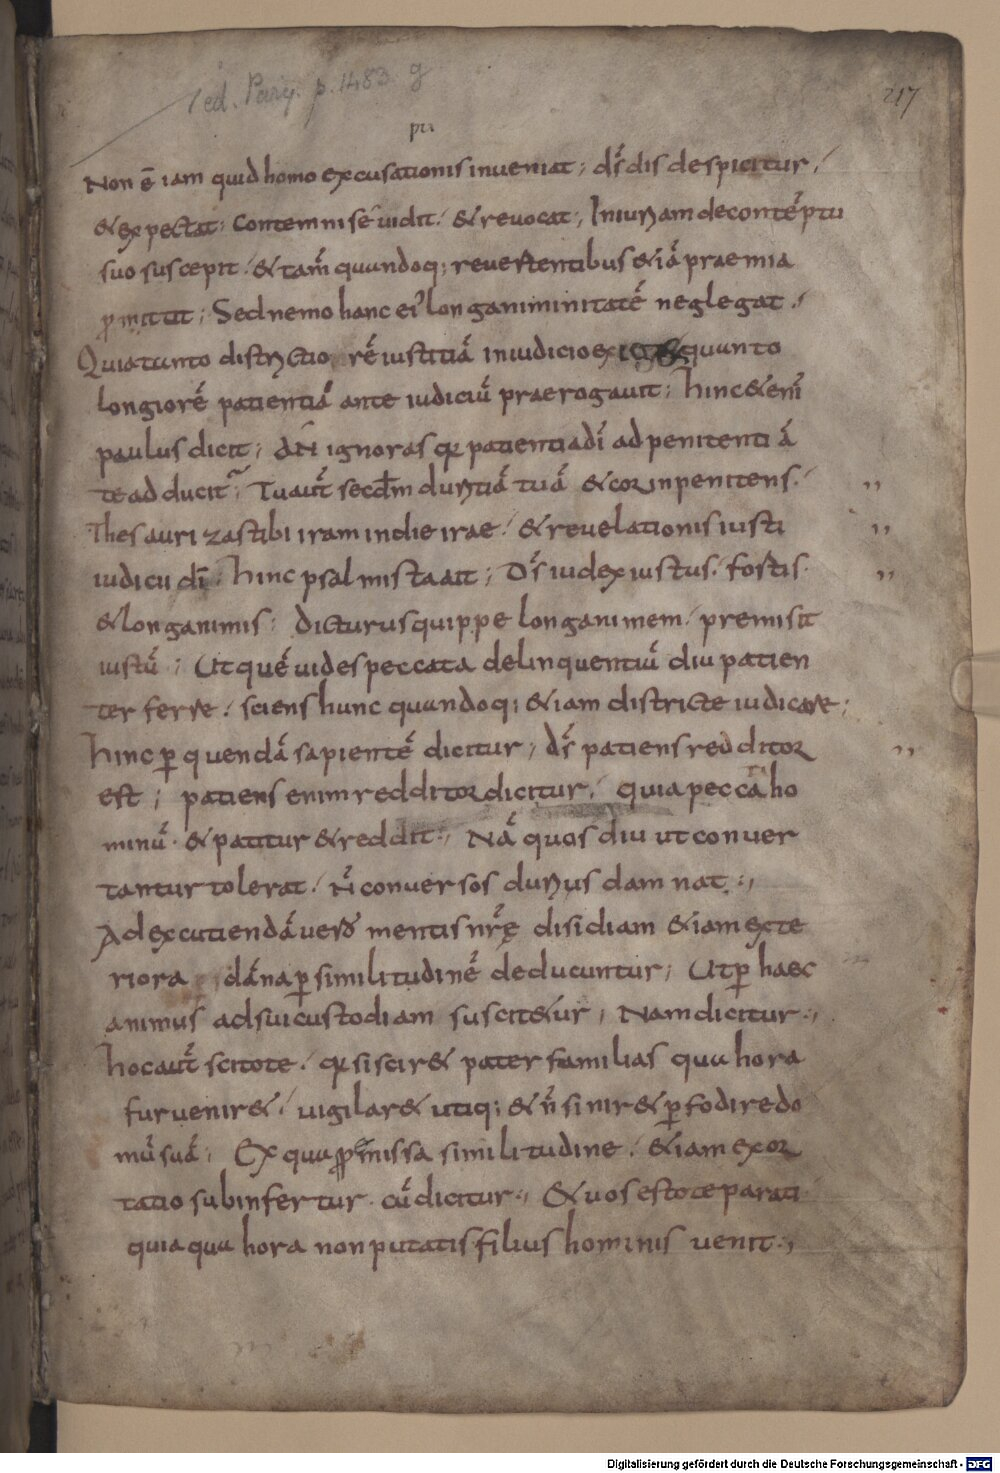 ed. Paris. p. 1483. g
217
Non ē iam quid homo excusationis inueniat; ds̄ dis despicitur,
& expectat; Contemni sē uidit, & reuocat; Iniuriam de contēptu
suo suscepit, & tam̄ quandoq; reuertentibus & iā praemia
ꝓmittit; Sed nemo hanc ei' longaniminitatē neglegat.
Quia tanto districtiorē iustitiā in iudicio quanto
longiorē patientiā ante iudiciū praerogauit; Hinc & eni̅
paulus dicit; An ignoras qꝛ patientia di̅ ad penitentiā
te adducit; Tu aut̄ secd̄m duritiā tuā & cor inpenitens.
Thesaurizas tibi iram in die irae, & reuelationis iusti
iudicii di̅. Hinc psalmista ait; Ds̄ iudex iustus. fortis.
& longanimis; Dicturus quippe longanimem, premisit
iustū; Ut quē uides peccata delinquentiū diu patien
ter ferre, sciens hunc quandoq; & iam districte iudicare;
Hinc ꝑ quendā sapientē dicitur; ds̄ patiens redditor
est; patiens enim redditor dicitur, quia peccā ho
minū & patitur & reddit; Nā quos diu ut conuer
tantur tolerat, n̄ conuersos durius damnat;
Ad excutiendā uero mentis nr̄ę disidiam & iam exte
riora dāna ꝑ similitudinē deducuntur; Ut ꝑ haec
animus ad sui custodiam suscit&ur; Nam dicitur;
Hoc aut̄ scitote, qꝛ si scir& pater familias qua hora
fur uenir&, uigilar& utiq; & n̄ sinir& ꝑfodi redo
mū suā; Ex qua ꝓmissa similitudine, & iam exor
tatio subinfertur cū dicitur; & uos estote parati
quia qua hora non putatis filius hominis uenit;
Digitalisierung gefördert durch die Deutsche Forschungsgemeinschaft - DFG